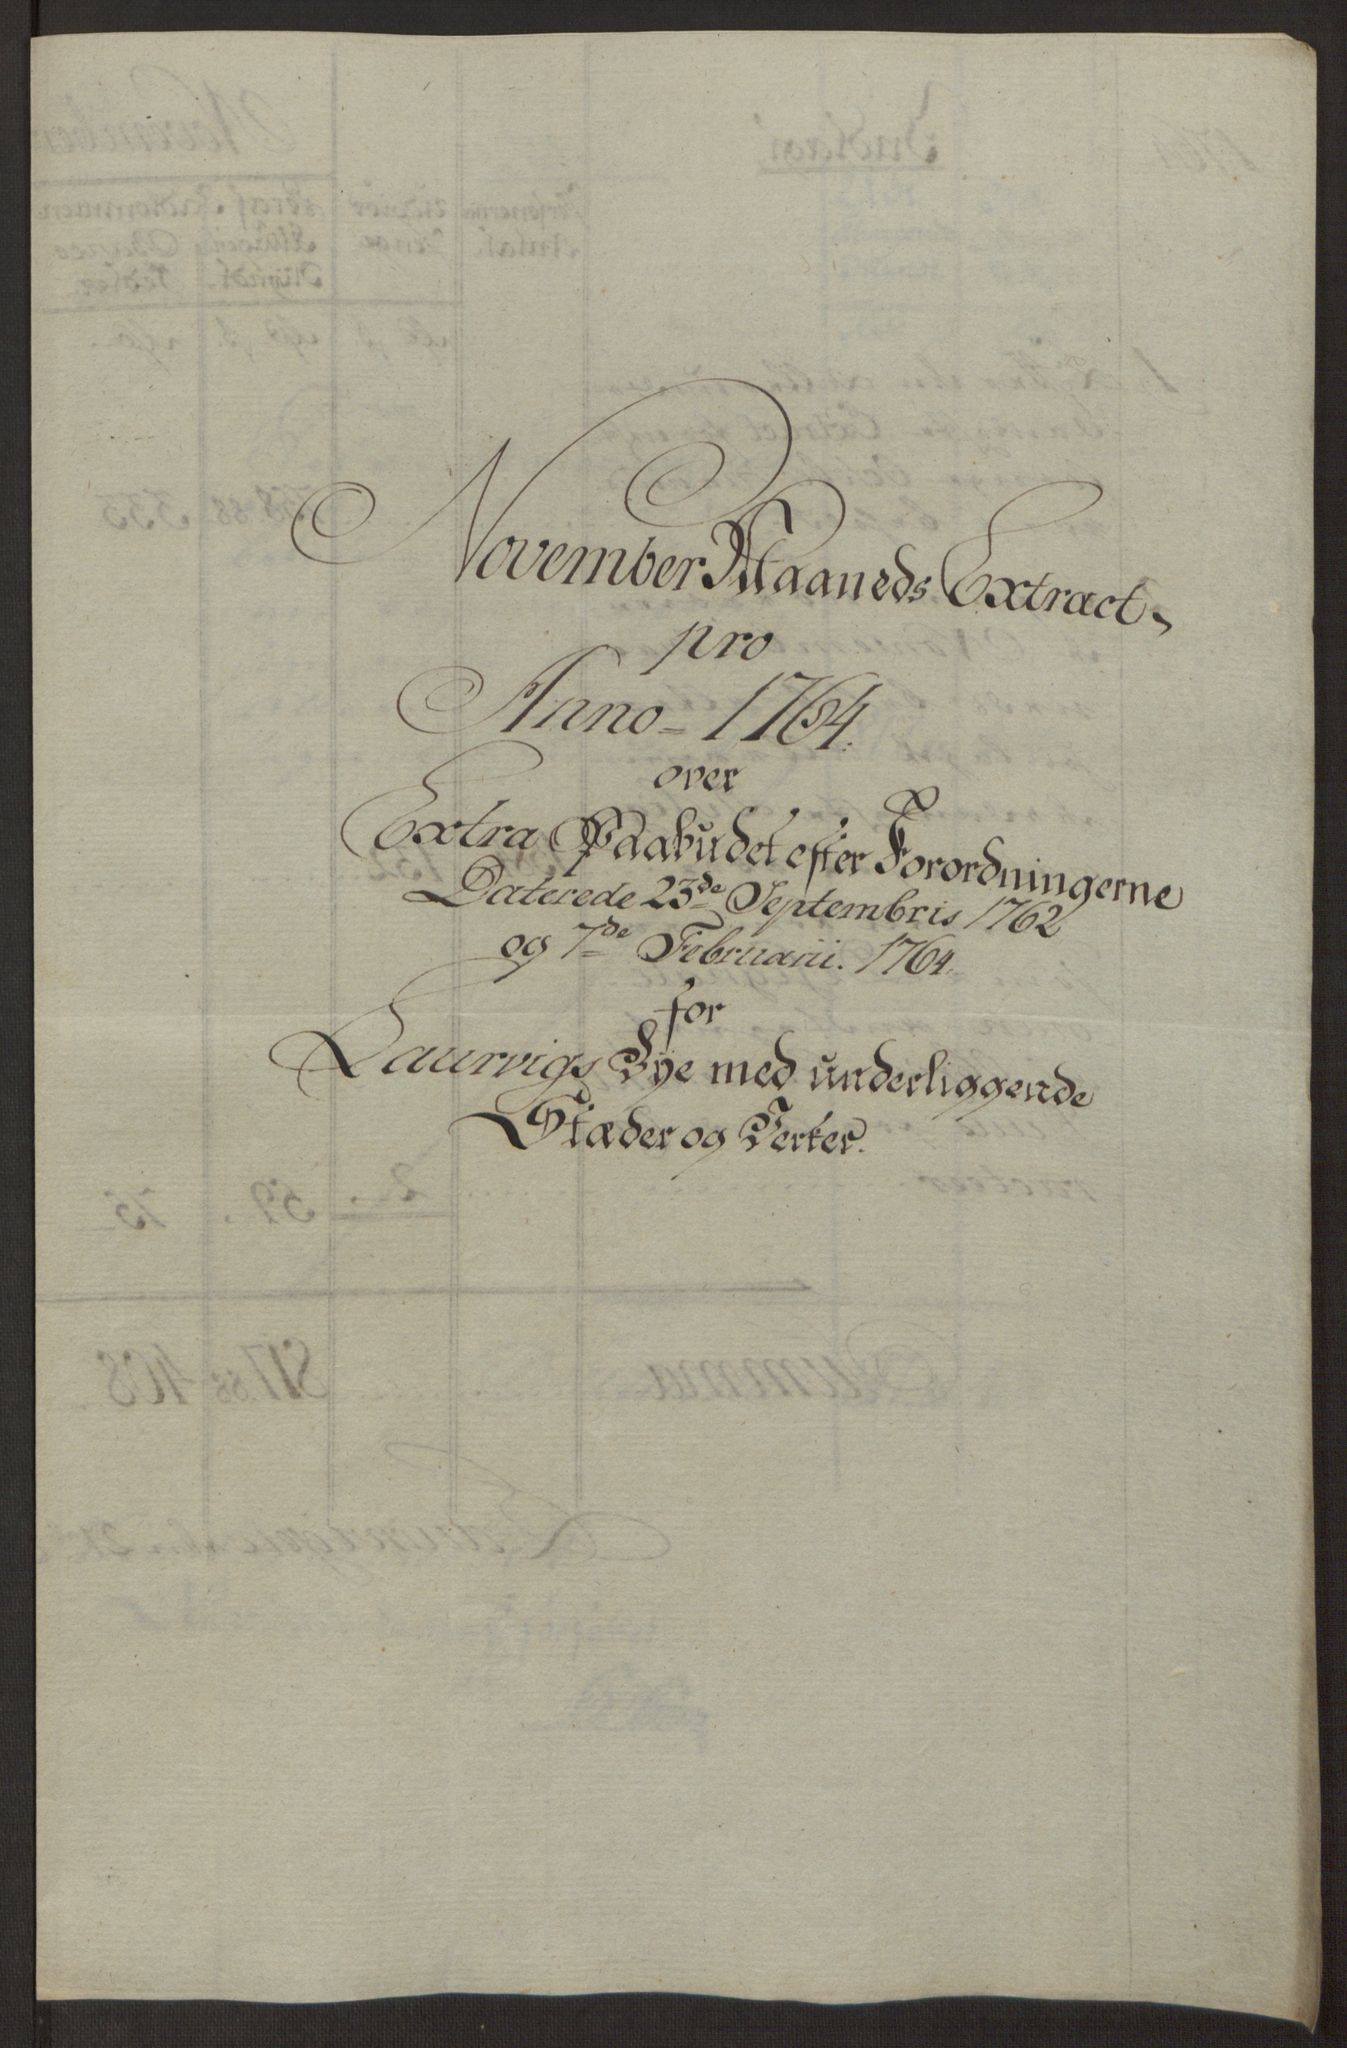 November Maaneds Extract
pro
Anno 1764.
over
Extra Paabudet efter Forordningerne
Daterede 23de Septembris 1762
og 7de Februarii. 1764.
for
Laurvigs Bye med underliggende
Stæder og Verker.